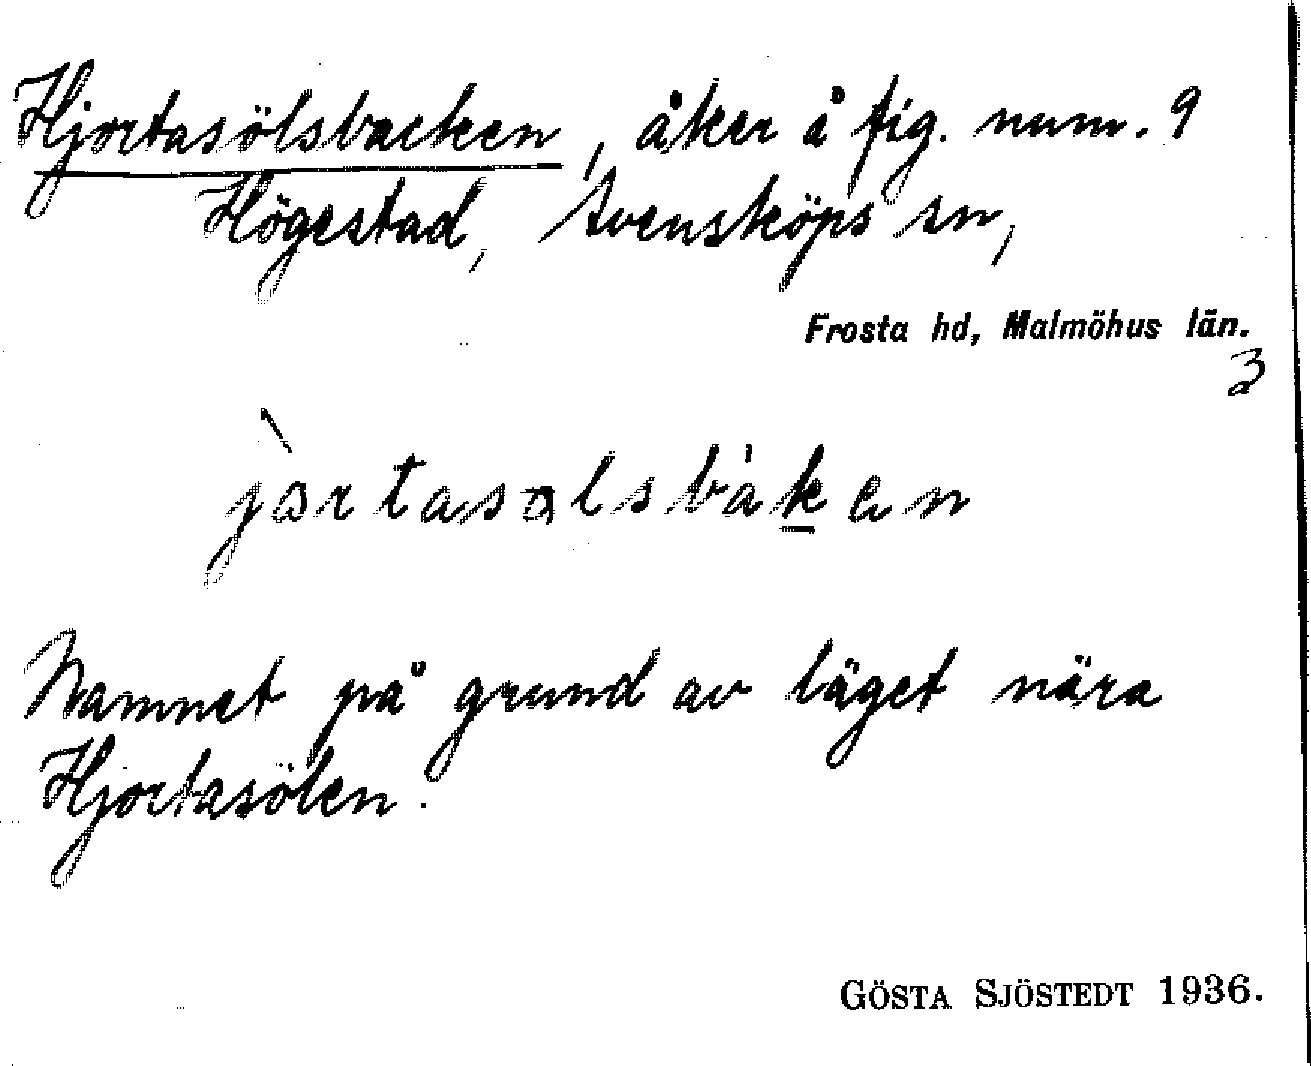 Hjortasölsbacken, åker å fig. num. 9
Högestad, Svensköps sn,
Frosta hd, Malmöhus län.
3
Namnet på grund av läget nära
Hjortasölen.
GÖSTA SJÖSTEDT 1936.